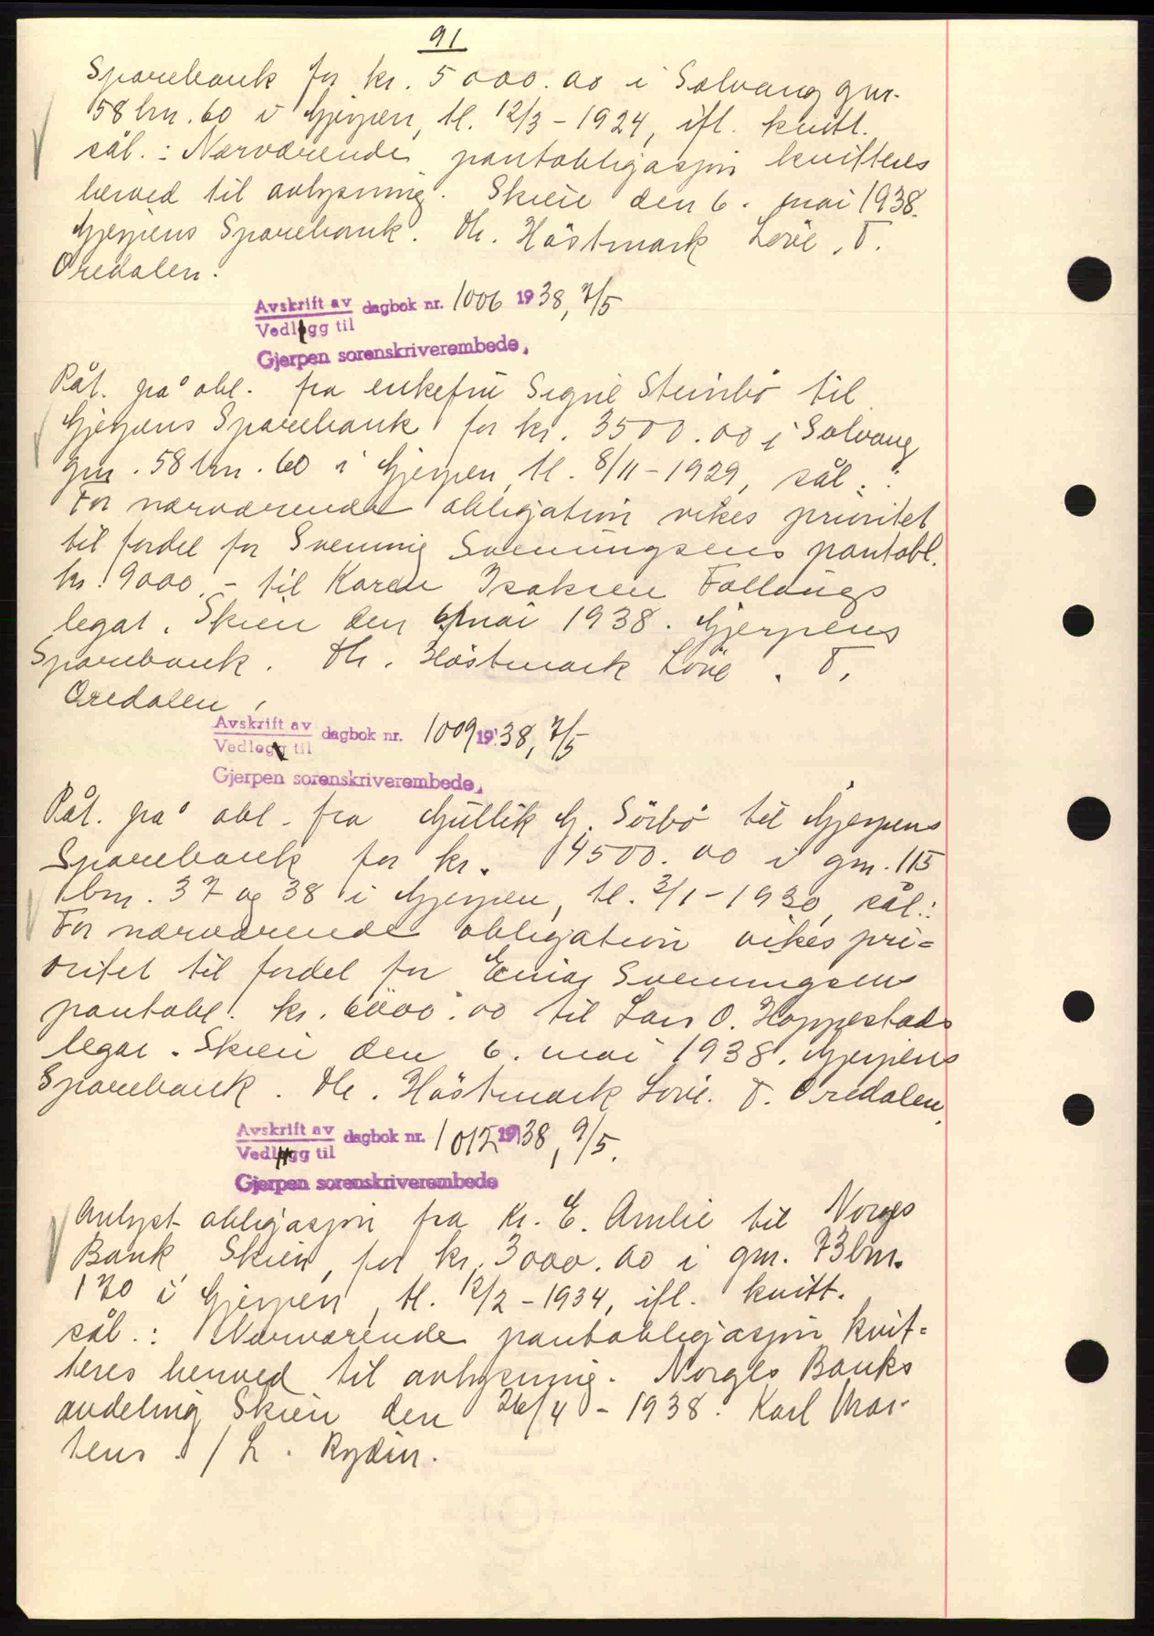 91
Sparebank for kr. 5000.00 i Solvang gnr.
58 bnr. 60 i Gjerpen, tl. 12/3 - 1924, ifl. kvitt.
sål.: Nærværende pantobligasjon kvitteres
herved til avlysning. Skien den 6. mai 1938.
Gjerpens Sparebank. Th. Höstmark Löve, T.
Oredalen.
Avskrift av dagbok nr. 1006 1938, 7/5
Vedlegg til
Gjerpen sorenskriverembede,
Påt. på obl. fra enkefru Signe Steinbö til
Gjerpens Sparebank for kr. 3500.00 i Solvang
gnr. 58 bnr. 60 i Gjerpen, tl. 8/11 - 1929, sål.:
For nærværende obligation vikes prioritet
til fordel for Svennig Svenningsens pantobl.
kr. 9000,- til Karen Isaksen Follaugs
legat. Skien den 6/mai 1938. Gjerpens
Sparebank. Th. Höstmark Löve. T.
Oredalen,
Avskrift av dagbok nr. 1009 1938, 7/5
Vedlegg til
Gjerpen sorenskriverembede,
Påt. på obl. fra Gullik G. Sörbö til Gjerpens
Sparebank for kr. 4500.00 i gnr. 115
bnr. 37 og 38 i Gjerpen, tl. 3/1 - 1930, sål.:
For nærværende obligation vikes pri=
oritet til fordel for Einar Svenningsens
pantobl. kr. 6000.00 til Lars O. Hoppestads
legat. Skien den 6. mai 1938. Gjerpens
Sparebank. Th. Höstmark Löve. T. Oredalen,
Avskrift av dagbok nr. 1012 1938, 9/5.
Vedlegg til
Gjerpen sorenskriverembede
Avlyst obligasjon fra Kr. E. Amlie til Norges
Bank, Skien, for kr. 3000.00 i gnr. 73 bnr.
130 i Gjerpen, tl. 12/2 - 1934, ifl. kvitt.
sål.: Nærværende pantobligasjon kvit=
teres herved til avlysning. Norges Banks
avdeling Skien den 26/4 - 1938. Karl Mar-
tens. / L. Rydin.